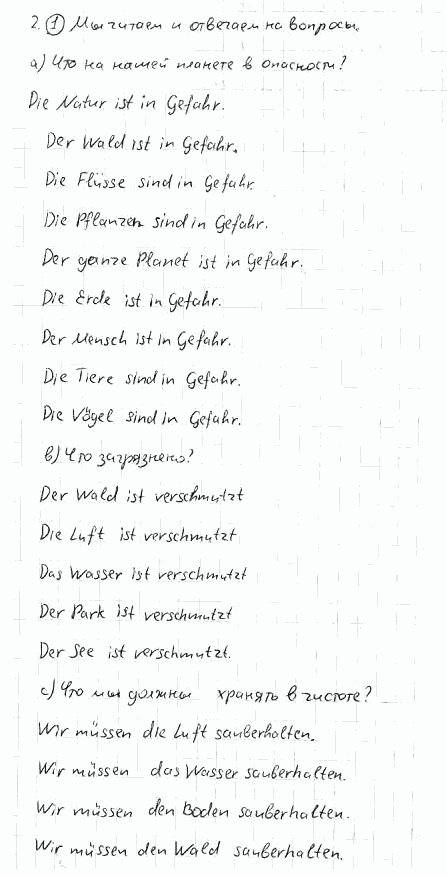 2. ① Мы читаем и отвечаем на вопросы.
а) Что на нашей планете в опасности?
Die Natur ist in Gefahr.
Der Wald ist in Gefahr.
Die Flüsse sind in Gefahr
Die Pflanzen sind in Gefahr.
Der ganze Planet ist in Gefahr.
Die Erde ist in Gefahr.
Der Mensch ist in Gefahr.
Die Tiere sind in Gefahr.
Die Vögel sind in Gefahr.
в) Что загрязнено?
Der Wald ist verschmutzt
Die Luft ist verschmutzt
Das Wasser ist verschmutzt
Der Park ist verschmutzt
Der See ist verschmutzt.
с) Что мы должны хранять в чистоте?
Wir müssen die Luft sauberhalten.
Wir müssen das Wasser sauberhalten.
Wir müssen den Boden sauberhalten.
Wir müssen den Wald sauberhalten.